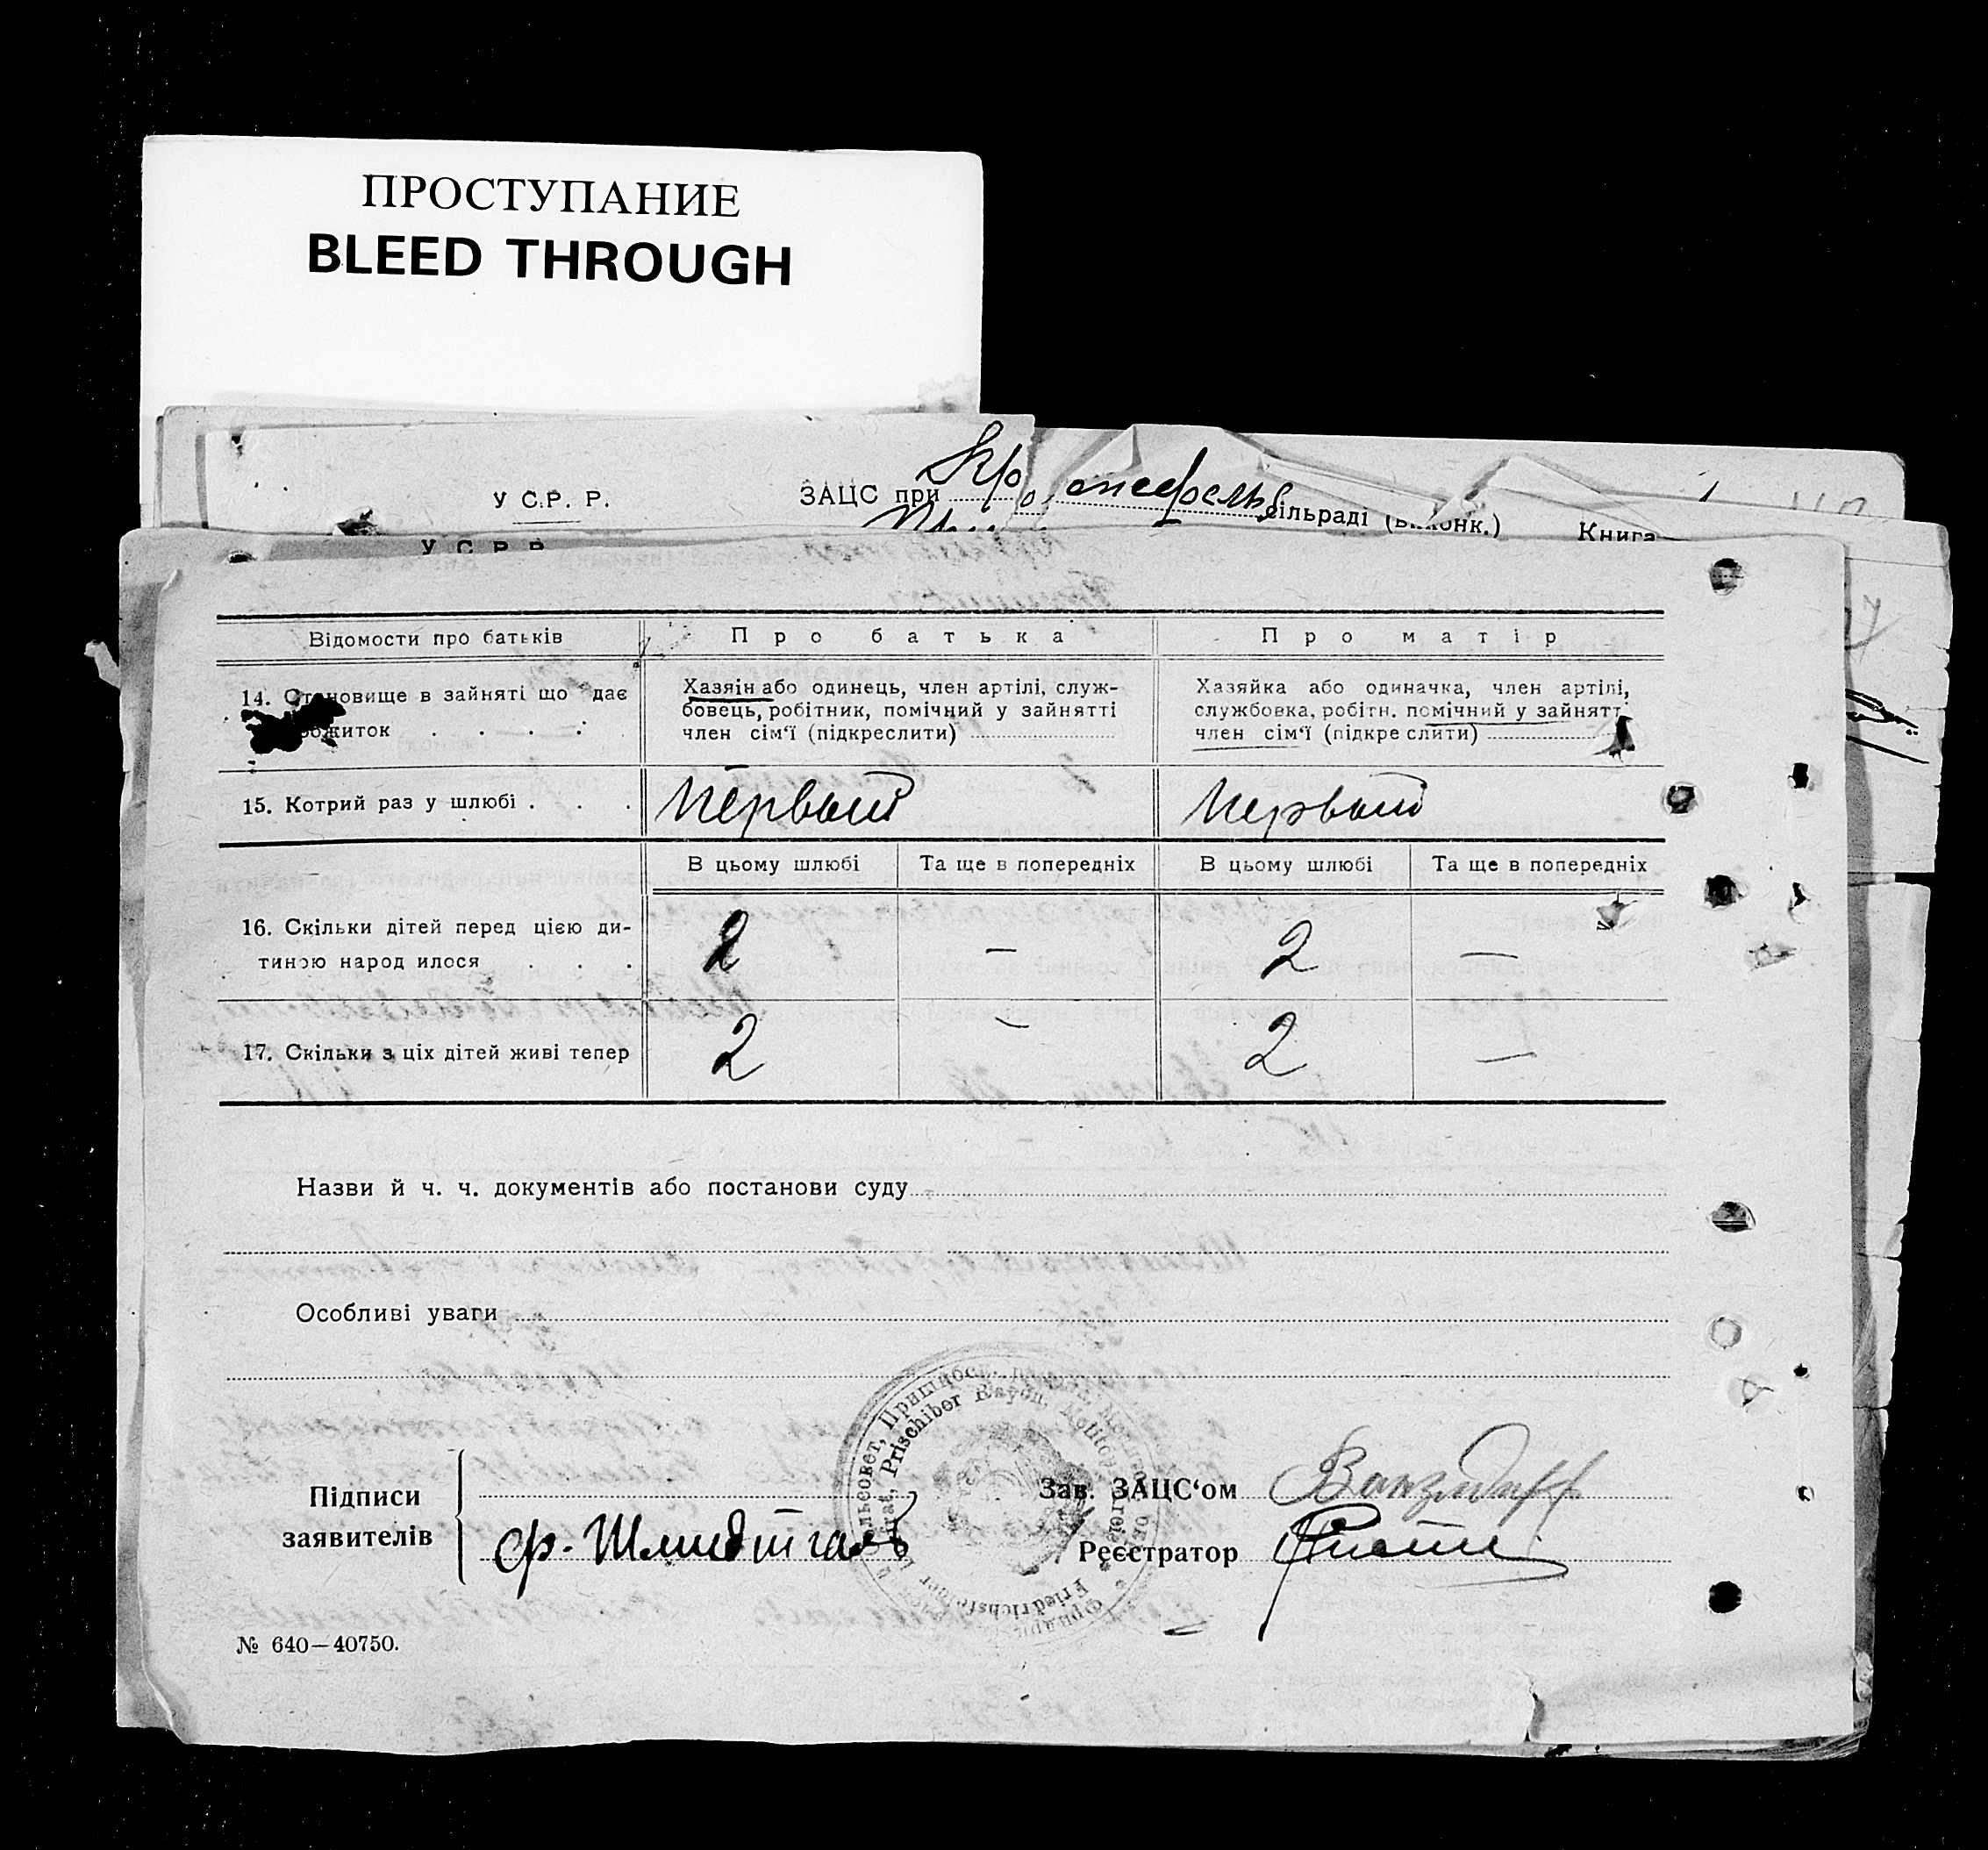 ПРОСТУПАНИЕ
BLEED THROUGH
У С.Р. Р.
ЗАЦС при
сільраді (Виконк.)
Книга
У С Р Р
Відомости про батьків
Про батька
Про матір
14. Становище в зайняті що дає
прожиток . . . .
Хазяін або одинець, член артілі, служ-
бовець, робітник, помічний у зайнятті
член сім‘ї (підкреслити)
Хазяйка або одиначка, член артілі,
службовка, робітн. помічний у зайнятт
член сім‘ї (підкре слити)
15. Котрий раз у шлюбі . . .
Первый
Первый
В цьому шлюбі
Та ще в попередніх
В цьому шлюбі
Та ще в попередніх
16. Скільки дітей перед цією ди-
тиною народ илося . . .
2
—
2
—
17. Скільки з ціх дітей живі тепер
2
—
2
—
Назви й ч. ч. документів або постанови суду
Особливі уваги
Підписи
заявителів
ф. Шмидтгаль
Prischiber Rayon,
Зав. ЗАЦС‘ом
Реєстратор
№ 640—40750.